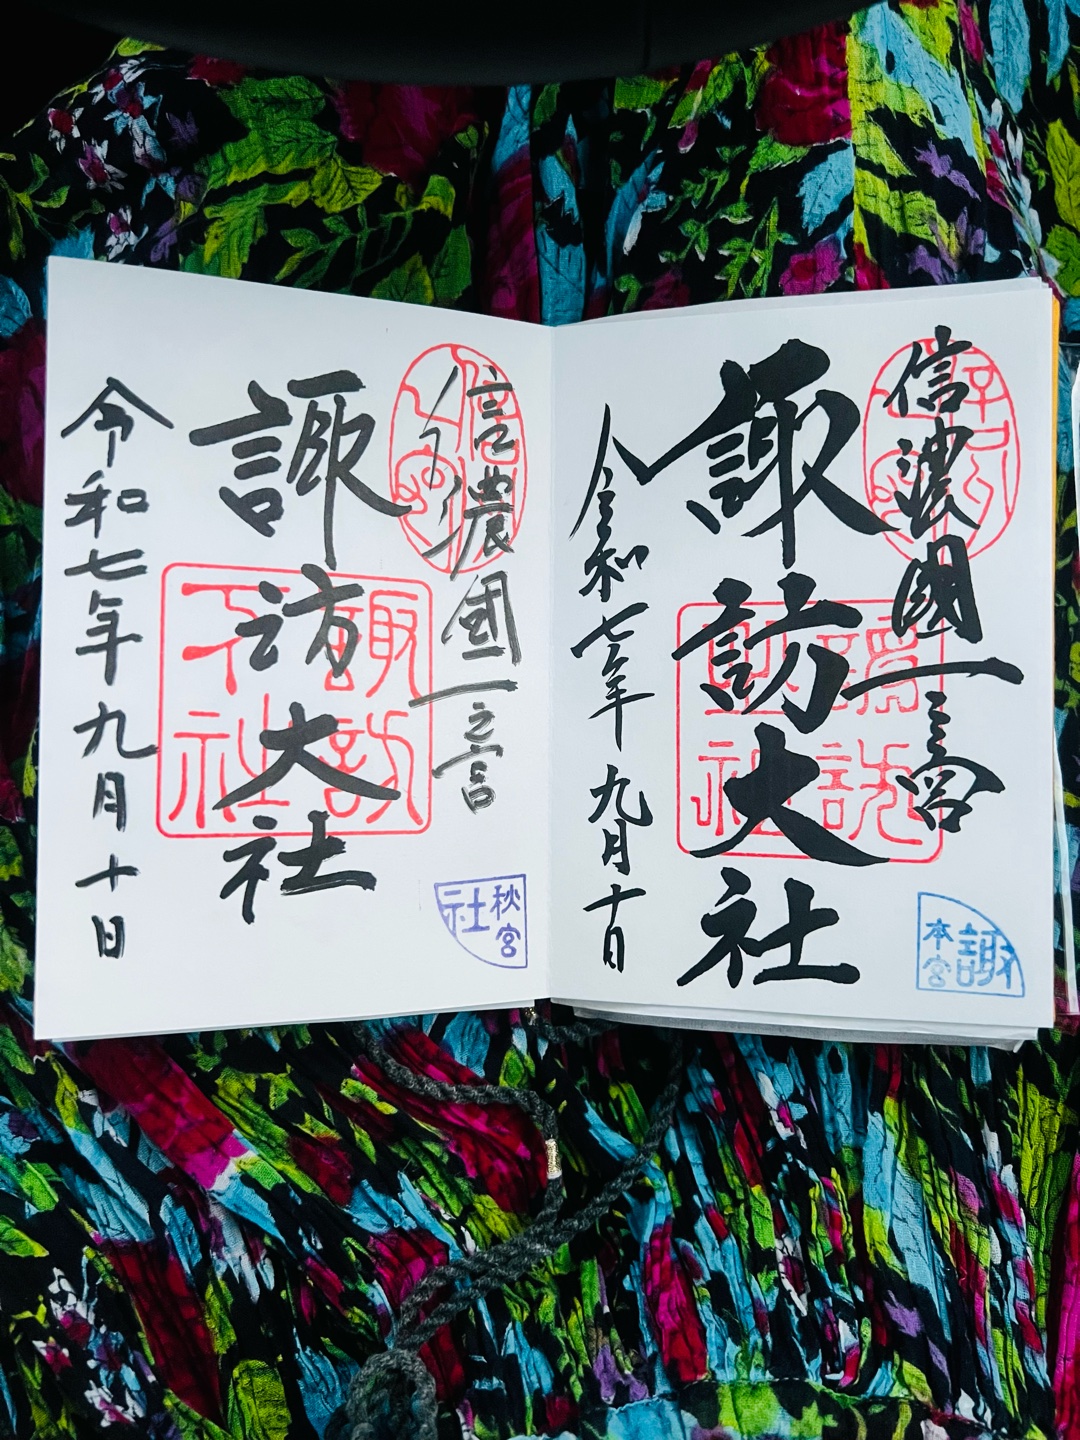 信濃國一之宮
諏訪大社
令和七年九月十日
諏
本宮
信濃國一之宮
諏訪大社
令和七年九月十日
諏訪
下社
秋宮
社